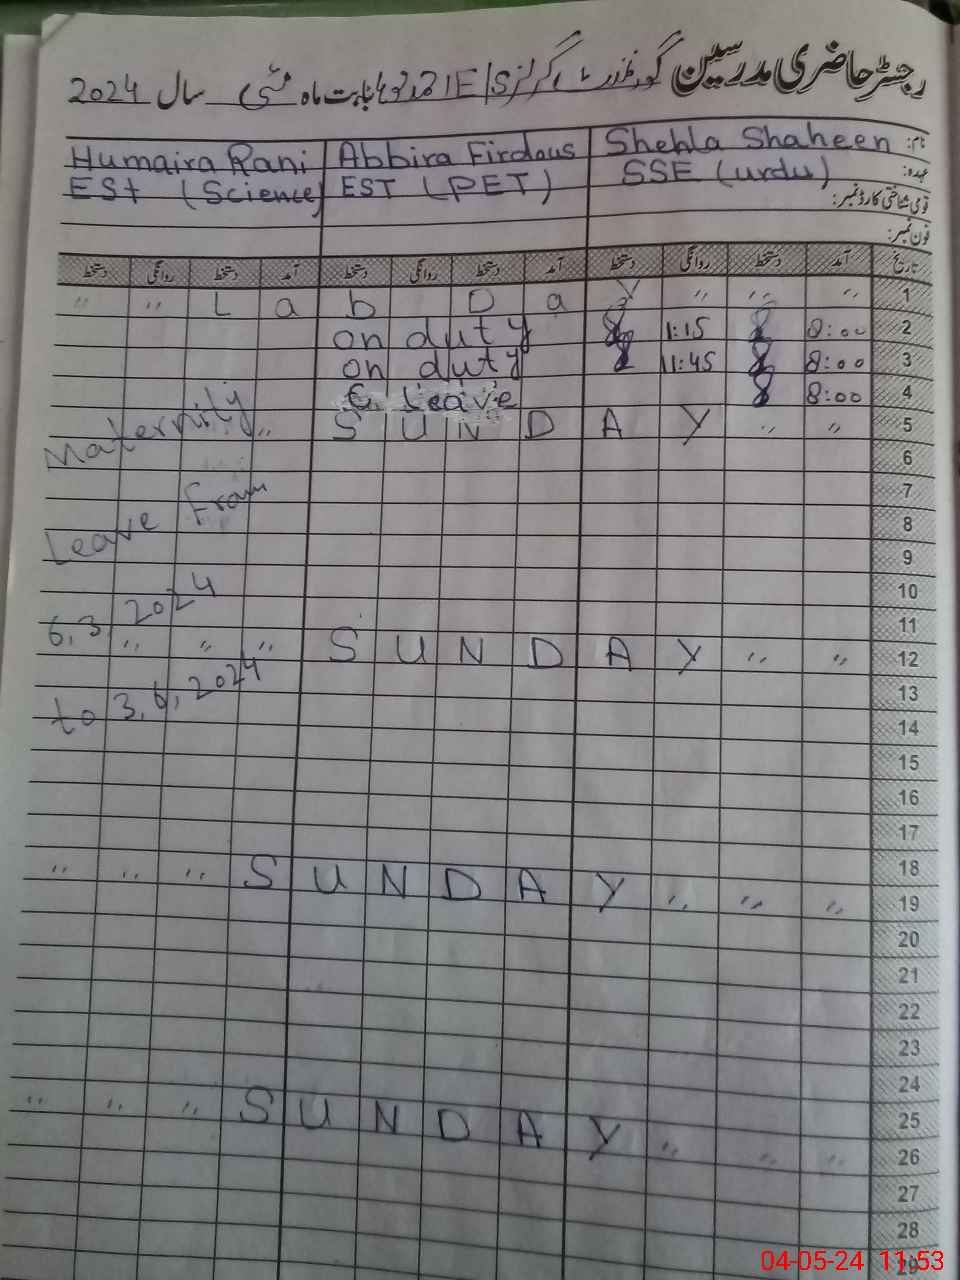 رجسٹر حاضری مدرسین گورنمنٹ گرلز E/S بابت ماہ مئی سال 2024
نام: Shehla Shaheen Abbira Firdous Humaira Rani
عہدہ: SSE (urdu) EST (PET) ESt (Science)
قومی شناختی کارڈ نمبر:
فون نمبر:
تاریخ آمد دستخط روانگی دستخط آمد دستخط روانگی دستخط آمد دستخط روانگی دستخط
" " L a b D a y " " " 1
on duty 1:15 8:00 2
on duty 11:45 8:00 3
C. leave 8:00 4
Maternity " S U N D A Y " " 5
6
Leave From 7
8
9
10
6.3.2024 11
" " " S U N D A Y " " 12
to 3.6.2024 13
14
15
16
17
18
" " " S U N D A Y " " " 19
20
21
22
23
24
25
" " " S U N D A Y " " " 26
27
28
29
04-05-24 11:53